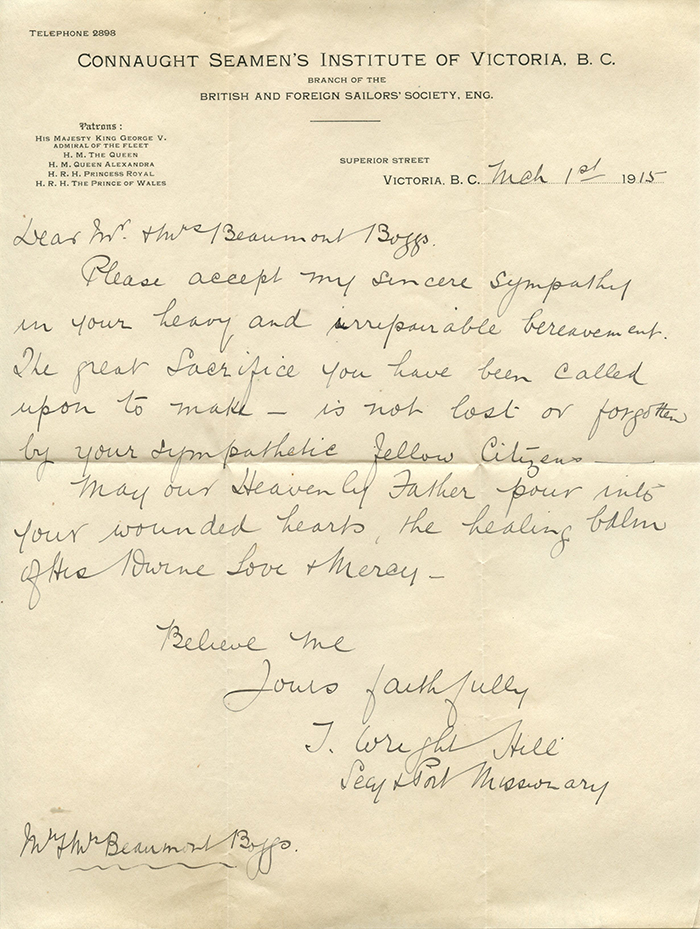 TELEPHONE 2898
CONNAUGHT SEAMEN'S INSTITUTE OF VICTORIA, B. C.
BRANCH OF THE
BRITISH AND FOREIGN SAILORS' SOCIETY, ENG.
Patrons:
HIS MAJESTY KING GEORGE V.
ADMIRAL OF THE FLEET
H. M. THE QUEEN
H. M. QUEEN ALEXANDRA
H. R. H. PRINCESS ROYAL
H. R. H. THE PRINCE OF WALES
SUPERIOR STREET
VICTORIA, B. C. Mch 1st 1915
Dear Mr. & Mrs Beaumont Boggs.
Please accept my sincere sympathy
in your heavy and irrepairable bereavement.
The great Sacrifice you have been called
upon to make – is not lost or forgotten
by your sympathetic fellow Citizens –
May our Heavenly Father pour into
your wounded hearts, the healing balm
of His Divine Love & Mercy –
Believe me
Yours faithfully
T. Wright Hill
Secy & Port Missionary
Mr & Mrs Beaumont Boggs.